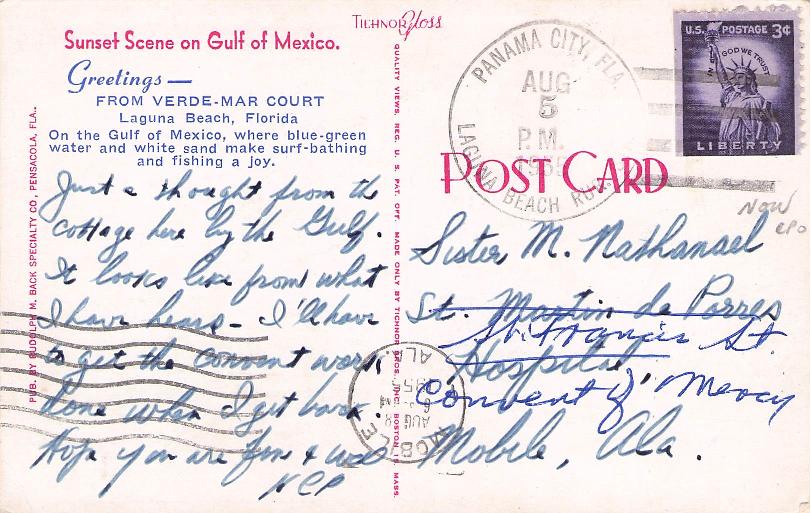 TICHNOR Gloss
Sunset Scene on Gulf of Mexico.
Greetings—
FROM VERDE-MAR COURT
Laguna Beach, Florida
On the Gulf of Mexico, where blue-green
water and white sand make surf-bathing
and fishing a joy.
Just a thought from the
cottage here by the Gulf.
It looks like from what
I have hears - I'll have
to get the convent work
done when I get back.
Hope you are fine & well
NCP
PUB. BY RUDOLPH M. BACK SPECIALTY CO., PENSACOLA, FLA..
QUALITY VIEWS, REG. U. S. PAT. OFF. MADE ONLY BY TICHNOR BROS., INC., BOSTON, MASS.
POST CARD
PANAMA CITY, FLA
AUG
5
P.M.
LAGUNA BEACH
U.S. POSTAGE 3¢
IN GOD WE TRUST
LIBERTY
NOW
CPO
Sister M. Nathanael
St. Martin de Porres
St. Francis St.
Hospital
Convent of Mercy
Mobile, Ala.
MOBILE
AUG 8
ALA.